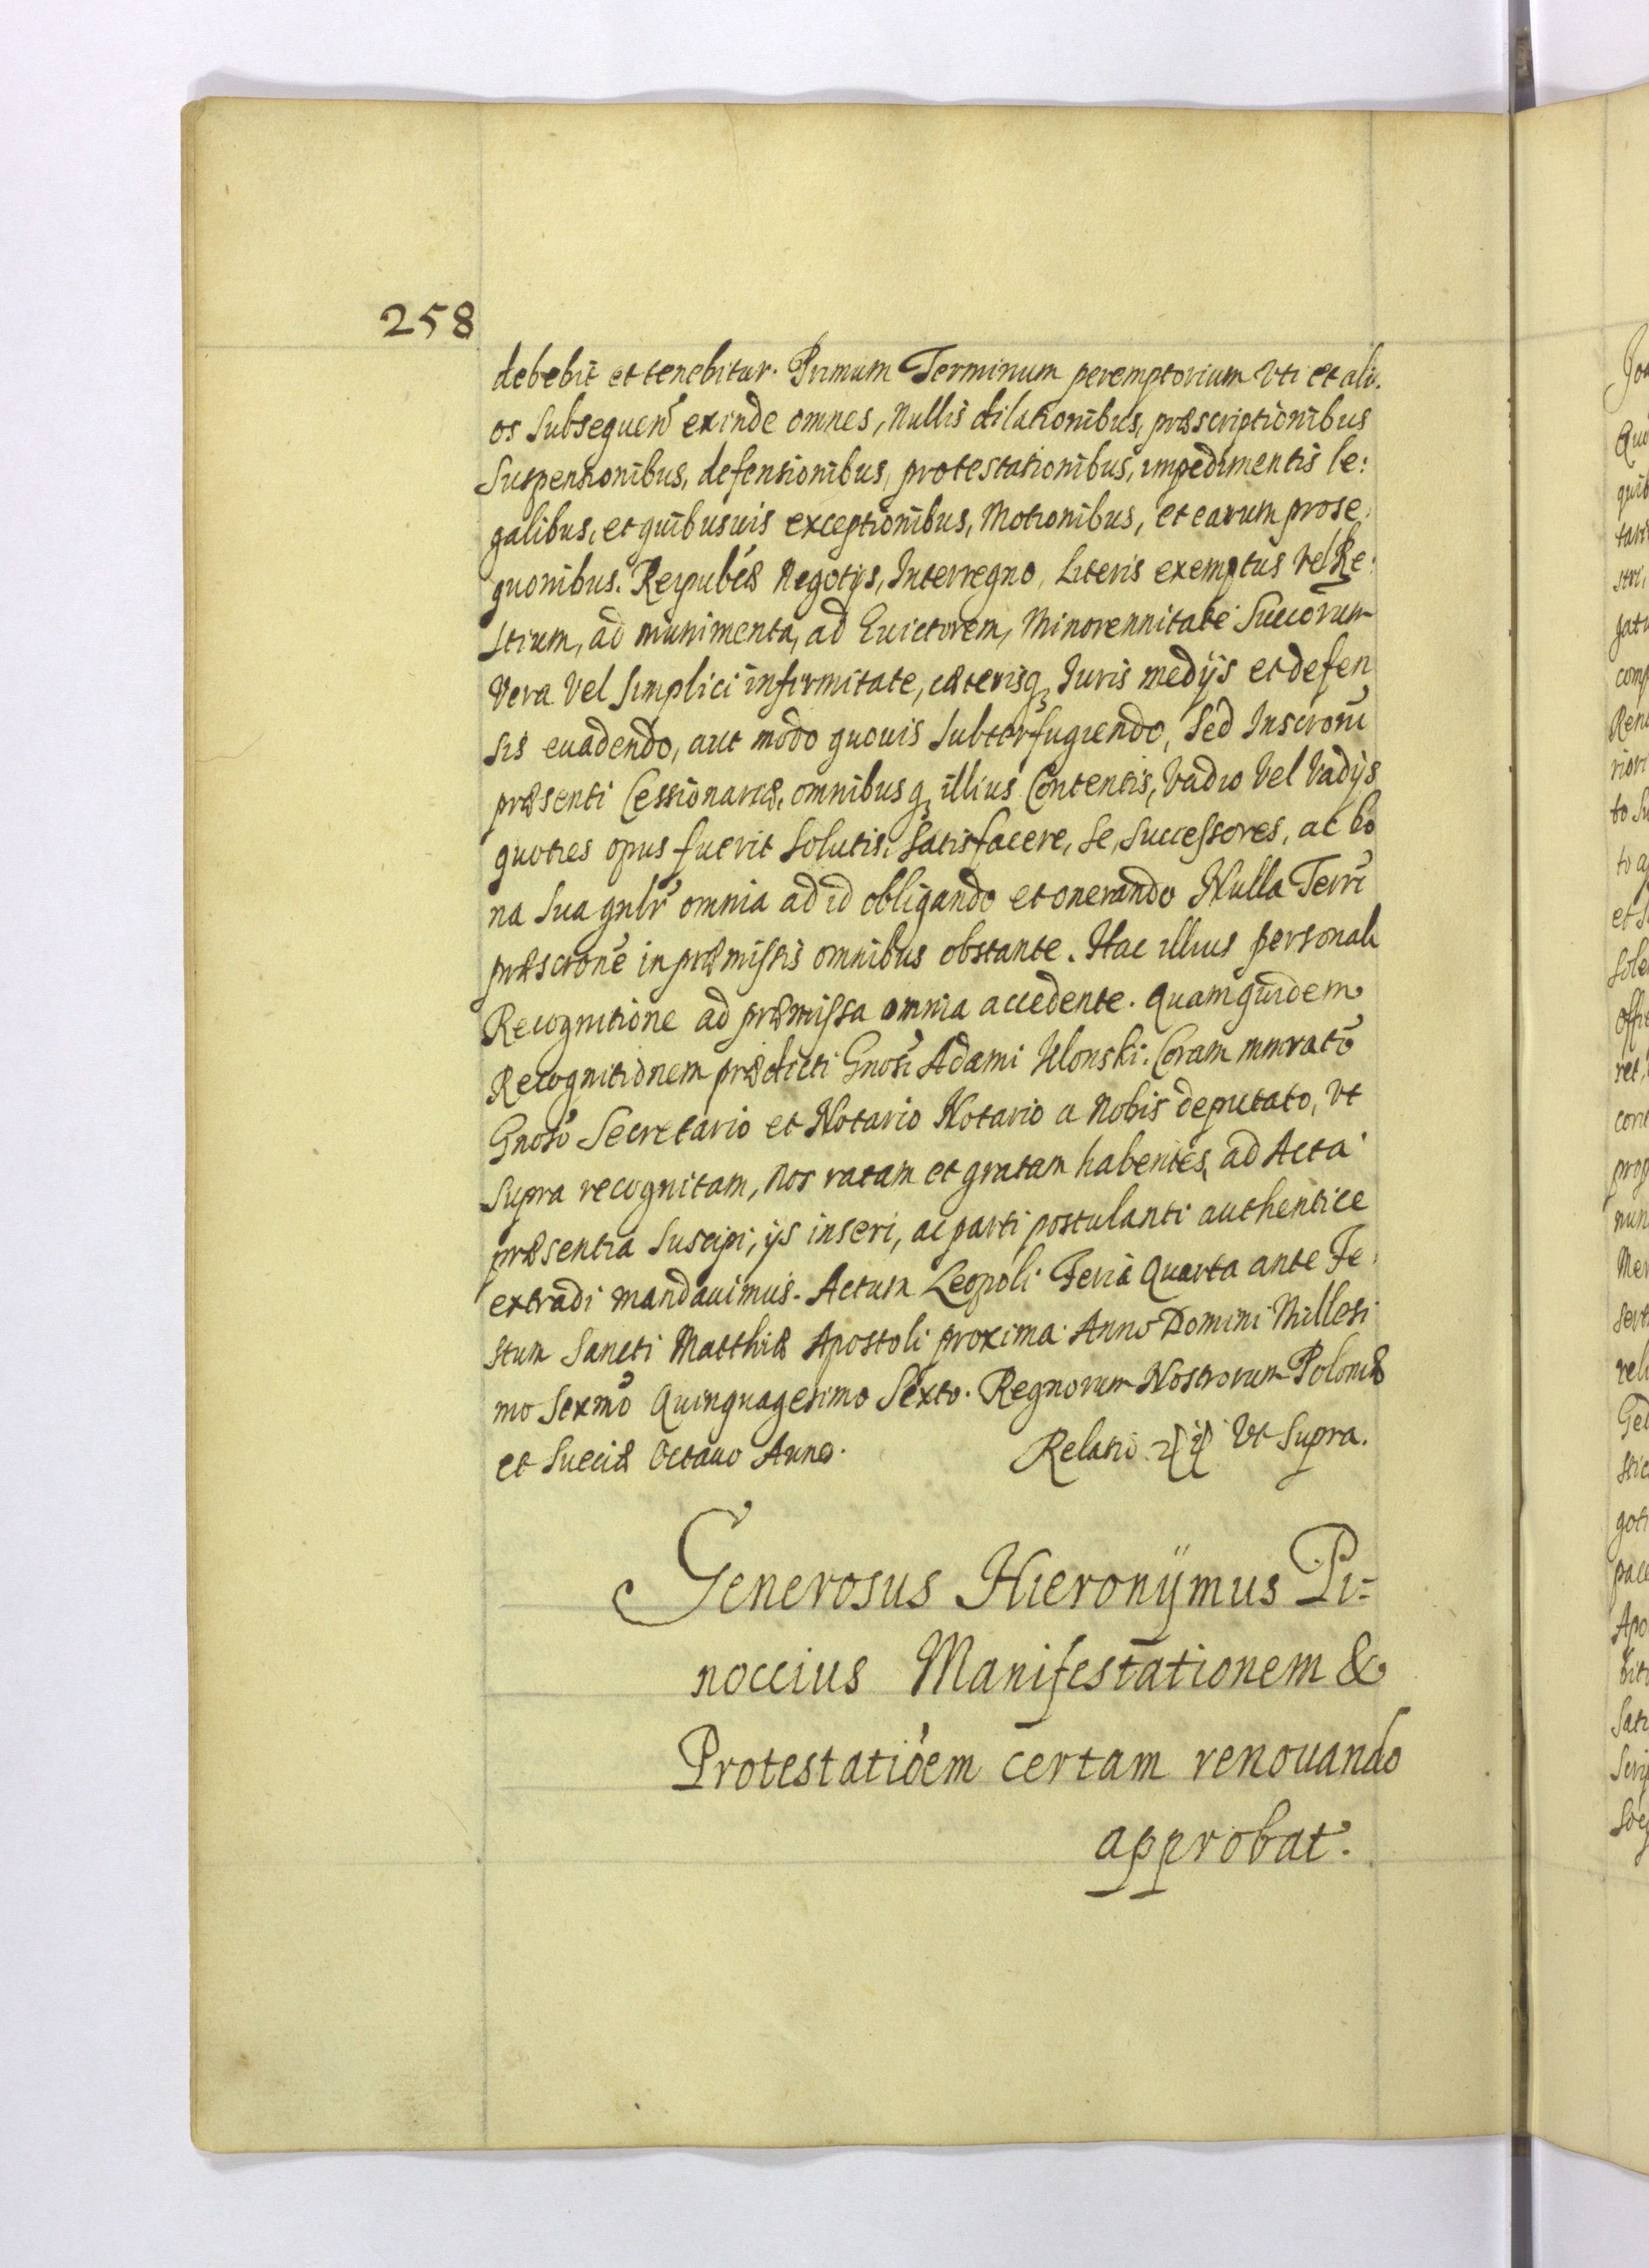 258
debebit et tenebitur. Primum Terminum peremptorium Vti et ali.
os Subsequen exinde omnes, Nullis dilationibus, præscriptionibus
Suspensionibus, defensionibus, protestationibus, impedimentis le:
galibus, et quibusuis exceptionibus, Motionibus, et earum prose.
quonibus. Reipublæ Negotijs, Interregno, Literis exemptus Vel Re:
stium, ad munimenta, ad Euictorem, Minorennitate Succorum
Vera Vel Simplici infirmitate, cæterisq Iuris medijs et defen
sis euadendo, aut modo quouis Subterfugiendo, Sed Inscroni
præsenti Cessionariæ, omnibusq illius Contentis, Vadio Vel Vadijs
quoties opus fuerit Solutis, Satisfacere, Se, Successores, ac bo
na Sua gnlr omnia ad id obligando et onerando Nulla Terri
præscrone in præmissis omnibus obstante. Hac illius personali
Recognitione ad præmissa omnia accedente. Quam quidem
Recognitionem prædicti Gnosi Adami Ulonski. Coram mmrato
Gnoso Secretario et Notario Notario a Nobis deputato, Vt
Supra recognitam, Nos ratam et gratam habentes, ad Acta
præsentia Suscipi, ijs inseri, ac parti postulanti authentice
extradi mandauimus. Actum Leopoli Feria Quarta ante Fe.
stum Sancti Matthiæ Apostoli proxima. Anno Domini Millesi
mo Sexmo Quinquagesimo Sexto. Regnorum Nostrorum Poloniæ
et Sueciæ Octauo Anno. Relatio Vt Supra.
Generosus Hieronÿmus Pi=
noccius Manifestationem &
Protestatioem certam renouando
approbat.